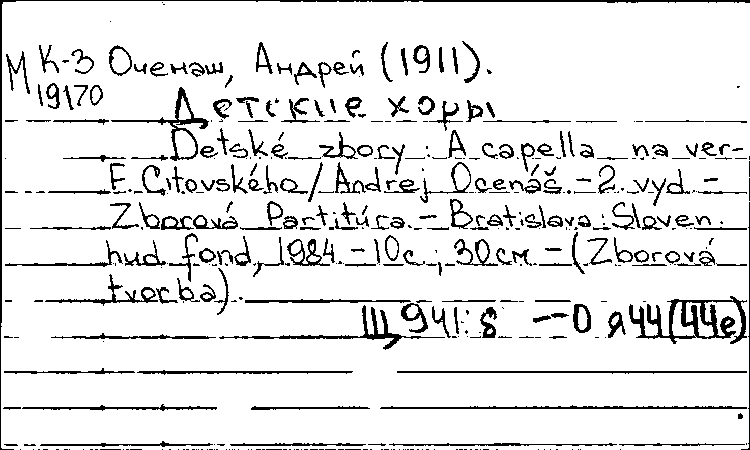 М К-3 Оченаш, Андрей (1911).
19170
Детские хоры
Detské zbory : A capella na ver-
F. Citovského / Andrej Ocenáš. - 2. vyd. -
Zborová Partitúra. - Bratislava : Sloven.
hud. fond, 1984. - 10с. ; 30см - (Zborová
tvorba).
Щ 941:8 --0 я44(44е)